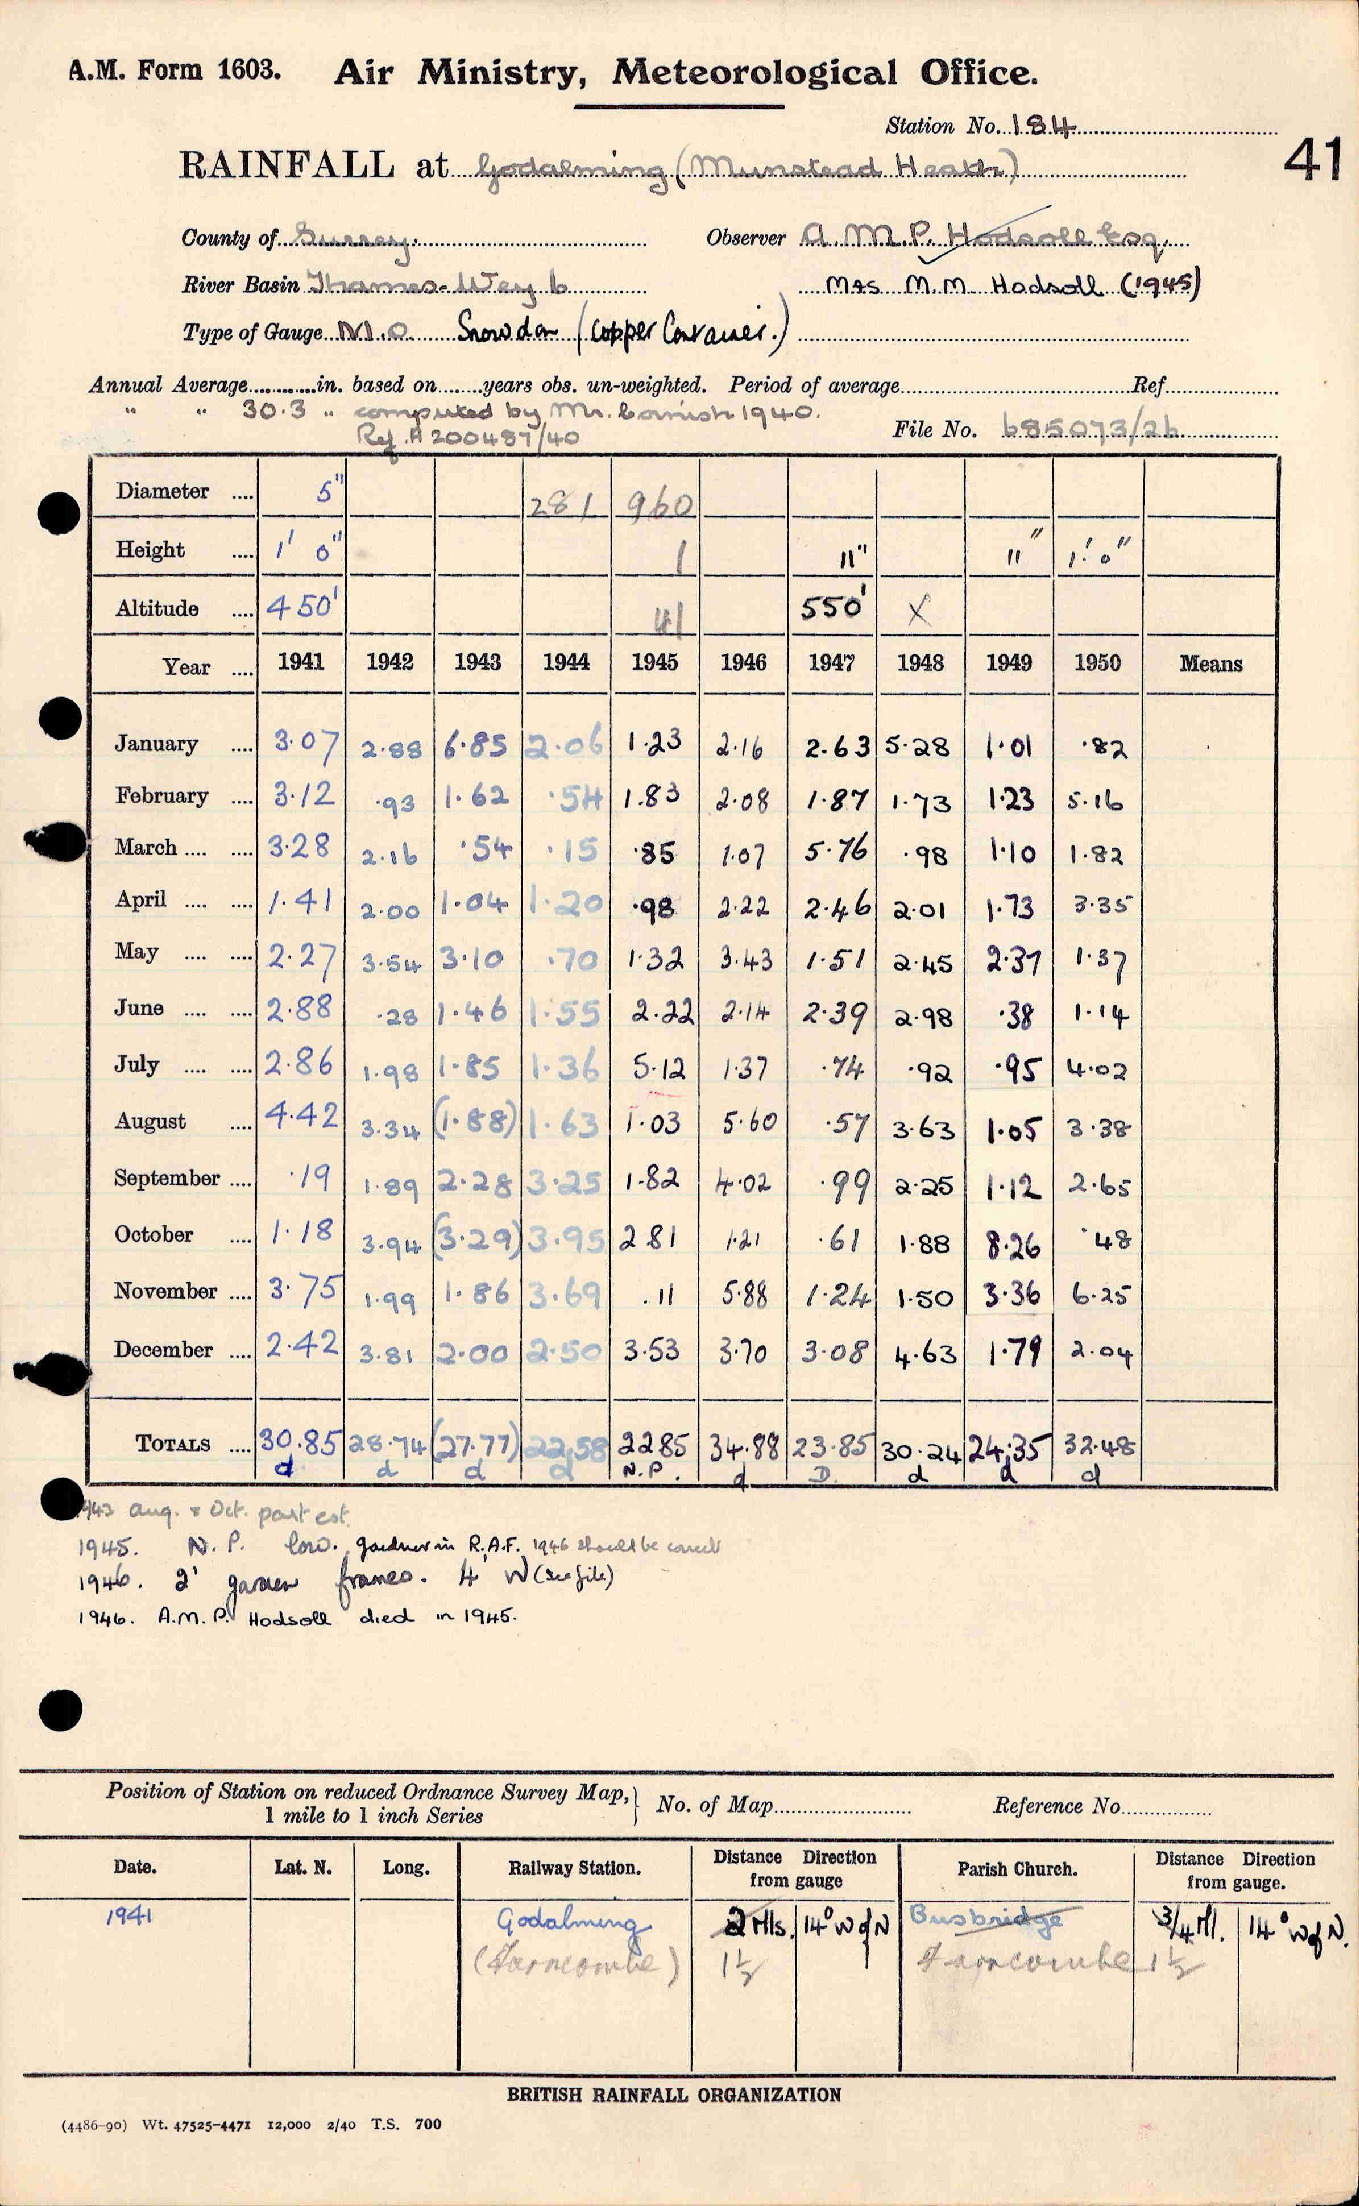 A.M. Form 1603. Air Ministry, Meteorological Office.
Station No. 184
41
RAINFALL at Godalming (Munstead Heath)
County of Surrey. Observer A.M.P. Hodsoll Esq.
River Basin Thames-Wey 6 Mrs M.M. Hodsoll (1945)
Type of Gauge M.O Snowdon (Copper Container.)
Annual Average in. based on years obs. un-weighted. Period of average Ref
" " 30.3 " computed by Mr. Cornish 1940.
Ref. A 200487/40 File No. 685073/26
Diameter 5" 281 960
Height 1' 0" 1 11" 11" 1' 0"
Altitude 450' 41 550' X
Year 1941 1942 1943 1944 1945 1946 1947 1948 1949 1950 Means
January 3.07 2.88 6.85 2.06 1.23 2.16 2.63 5.28 1.01 .82
February 3.12 .93 1.62 .54 1.83 2.08 1.87 1.73 1.23 5.16
March 3.28 2.16 .54 .15 .85 1.07 5.76 .98 1.10 1.82
April 1.41 2.00 1.04 1.20 .98 2.22 2.46 2.01 1.73 3.35
May 2.27 3.54 3.10 .70 1.32 3.43 1.51 2.45 2.37 1.37
June 2.88 .28 1.46 1.55 2.22 2.14 2.39 2.98 .38 1.14
July 2.86 1.98 1.85 1.36 5.12 1.37 .74 .92 .95 4.02
August 4.42 3.34 (1.88) 1.63 1.03 5.60 .57 3.63 1.05 3.38
September .19 1.89 2.28 3.25 1.82 4.02 .99 2.25 1.12 2.65
October 1.18 3.94 (3.29) 3.95 2 81 1.21 .61 1.88 8.26 .48
November 3.75 1.99 1.86 3.69 .11 5.88 1.24 1.50 3.36 6.25
December 2.42 3.81 2.00 2.50 3.53 3.70 3.08 4.63 1.79 2.04
TOTALS 30.85 28.74 (27.77) 22.58 22 85 34.88 23.85 30.24 24.35 32.48
d d d d N.P. d D. d d d
1943 aug. & Oct. part est.
1945. N.P. low. gardner in R.A.F. 1946 should be correct
1946. 2' garden frames. 4' W (see file)
1946. A.M.P. Hodsoll died in 1945.
Position of Station on reduced Ordnance Survey Map, 1 mile to 1 inch Series } No. of Map Reference No
Date. Lat. N. Long. Railway Station. Distance from gauge Direction Parish Church. Distance from gauge. Direction
1941 Godalming 2 Mls. 14° W of N Busbridge 3/4 Ml. 14° W of N.
(Farncombe) 1½ Farncombe 1½
BRITISH RAINFALL ORGANIZATION
(4486-90) Wt. 47525-4471 12,000 2/40 T.S. 700